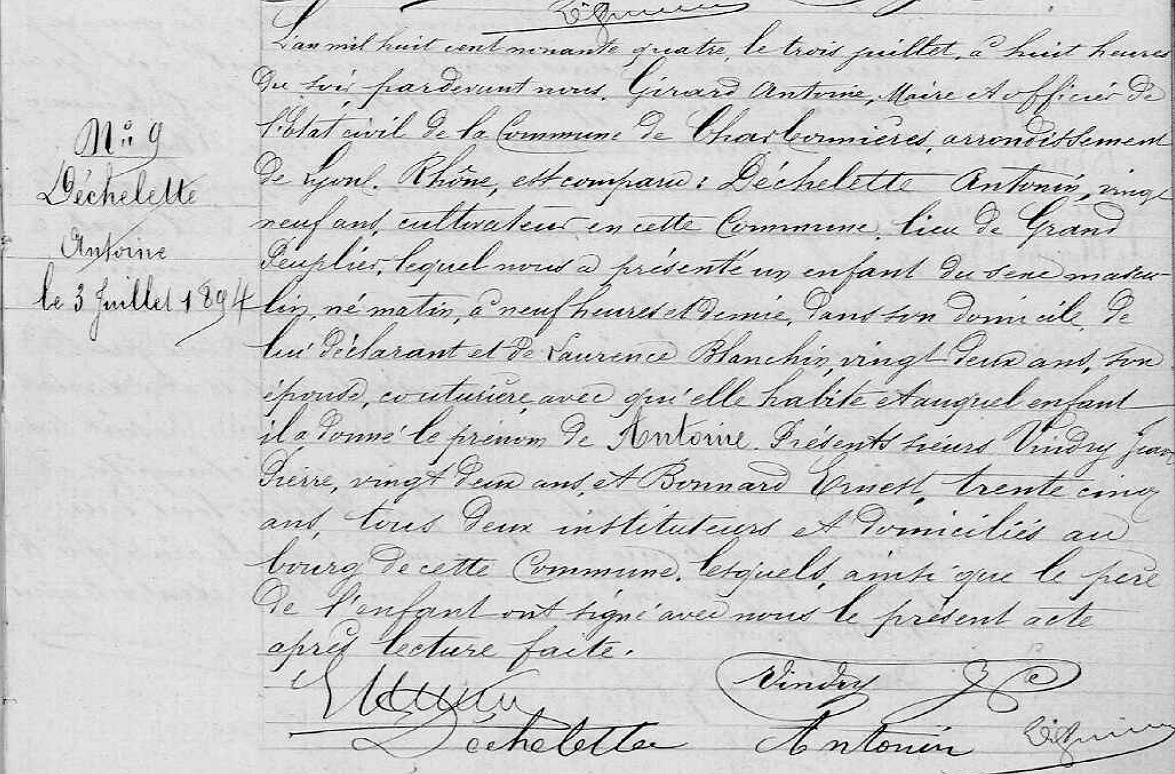 L'an mil huit cent nonante quatre, le trois juillet, à huit heures
du soir, pardevant nous, Girard Antoine, Maire et officier de
l'Etat civil de la Commune de Charbonnières, arrondissement
de Lyon. Rhône, est comparu : Déchelette Antonin, vingt
neuf ans, cultivateur en cette Commune, lieu de Grand
Peuplier, lequel nous a présenté un enfant du sexe mascu-
lin, né matin, à neuf heures et demie, dans son domicile, de
lui déclarant et de Laurence Blanchin, vingt deux ans, son
épouse, couturière, avec qu'elle habite et auquel enfant
il a donné le prénom de Antoine. Présents sieurs Vindry jean
Pierre, vingt deux ans, et Bonnard Ernest, trente cinq
ans, tous deux instituteurs et domiciliés au
bourg de cette Commune, lesquels, ainsi que le père
de l'enfant ont signé avec nous le présent acte
après lecture faite.
N° 9
Déchelette
Antoine
le 3 Juillet 1894
Vindry
Déchelette Antonin